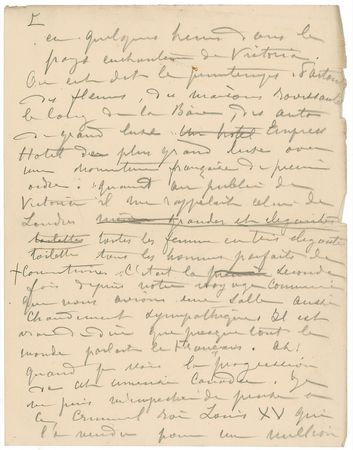 5
en quelques heures dans le
pays enchanteur de Victoria
On est dit le printemps d'
des fleurs, des maisons
le long de la Baie, des autos
de grand luxe Un hotel Empress
Hotel de plus grand luxe avec
une nourriture française de premier
ordre: quant au public de
Victoria il me rappelait celui de
Londres grandes et elegantes
toilettes toutes les femmes en très elegante
toilette tous les hommes parfaits de
+ C'etait la premiere seconde
fois depuis notre voyage commencé
que nous avions une salle aussi
chaudement sympathique Il est
vrai dire que presque tout le
monde parlait le Français. Ah!
quand je vois la progression
de cet immense Canada. Je
ne puis m'empecher de penser a
ce Criminel Roi Louis XV qui
l'a vendu pour un million